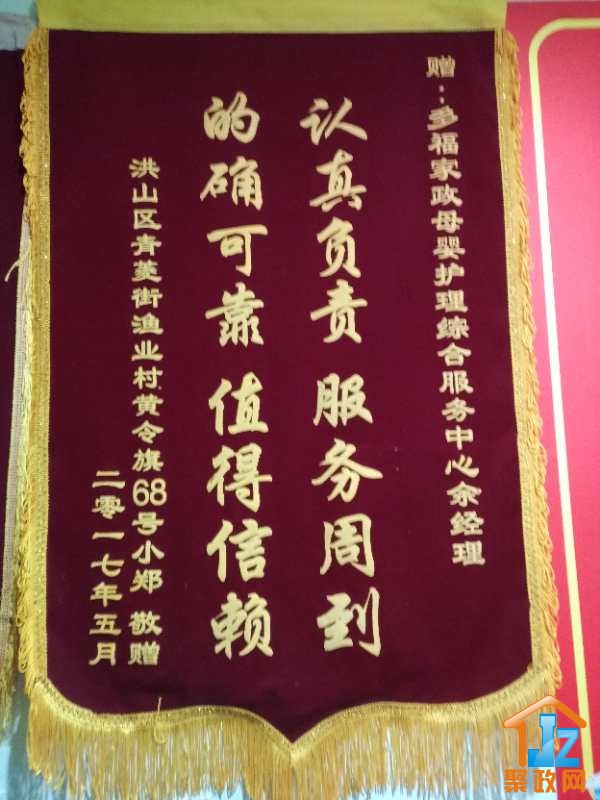 赠：多福家政母婴护理综合服务中心余经理
认真负责 服务周到
的确可靠 值得信赖
洪山区青菱街渔业村黄令旗68号小郑 敬赠
二零一七年五月
JZ
聚政网